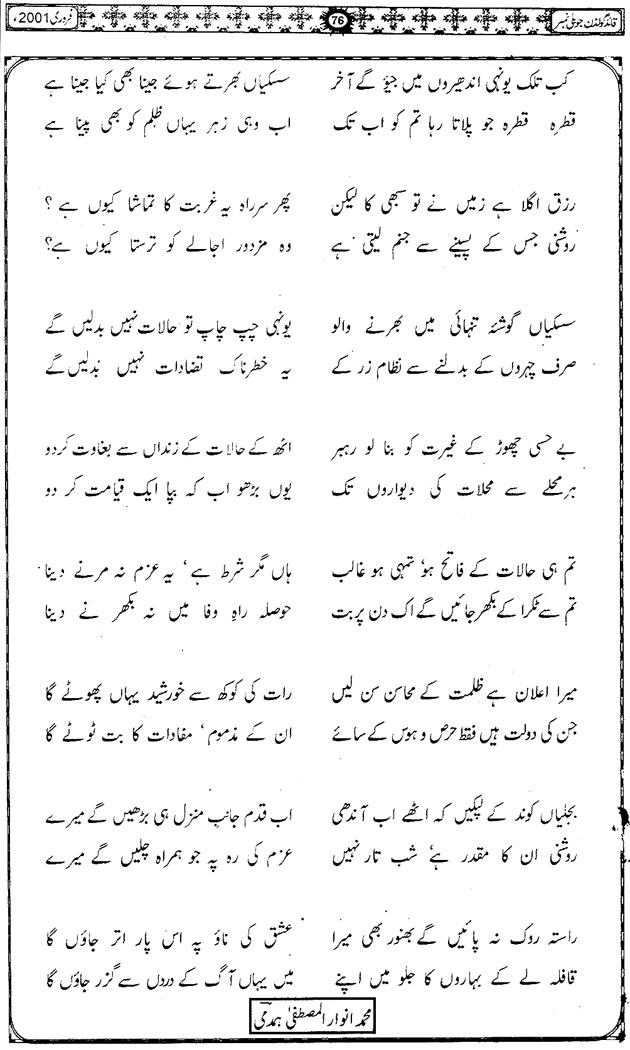 قائد گولڈن جوبلی نمبر
76
فروری 2001ء
کب تلک یونہی اندھیروں میں جیؤ گے آخر سسکیاں بھرتے ہوئے جینا بھی کیا جینا ہے
قطرہ قطرہ جو پلاتا رہا تم کو اب تک اب وہی زہر یہاں ظلم کو بھی پینا ہے
رزق اگلا ہے زمیں نے تو سبھی کا لیکن پھر سرراہ یہ غربت کا تماشا کیوں ہے ؟
روشنی جس کے پسینے سے جنم لیتی ہے وہ مزدور اجالے کو ترستا کیوں ہے؟
سسکیاں گوشئہ تنہائی میں بھرنے والو یونہی چپ چاپ تو حالات نہیں بدلیں گے
صرف چہروں کے بدلنے سے نظام زر کے یہ خطرناک تضادات نہیں بدلیں گے
بے حسی چھوڑ کے غیرت کو بنا لو رہبر اٹھ کے حالات کے زنداں سے بغاوت کردو
ہر محلے سے محلات کی دیواروں تک یوں بڑھو اب کہ بپا ایک قیامت کر دو
تم ہی حالات کے فاتح ہو' تمہی ہو غالب ہاں مگر شرط ہے' یہ عزم نہ مرنے دینا
تم سے ٹکرا کے بکھر جائیں گے اک دن پربت حوصلہ راہِ وفا میں نہ بکھر نے دینا
میرا اعلان ہے ظلمت کے محاسن سن لیں رات کی کوکھ سے خورشید یہاں پھوٹے گا
جن کی دولت ہیں فقط حرص و ہوس کے سائے ان کے مذموم' مفادات کا بت ٹوٹے گا
بجلیاں کوند کے لپکیں کہ اٹھے اب آندھی اب قدم جانبِ منزل ہی بڑھیں گے میرے
روشنی ان کا مقدر ہے' شب تار نہیں عزم کی رہ پہ جو ہمراہ چلیں گے میرے
راستہ روک نہ پائیں گے بھنور بھی میرا عشق کی ناؤ پہ اس پار اتر جاؤں گا
قافلہ لے کے بہاروں کا جلو میں اپنے میں یہاں آگ کے دردں سے گزر جاؤں گا
محمد انوار المصطفیٰ ہمدمی